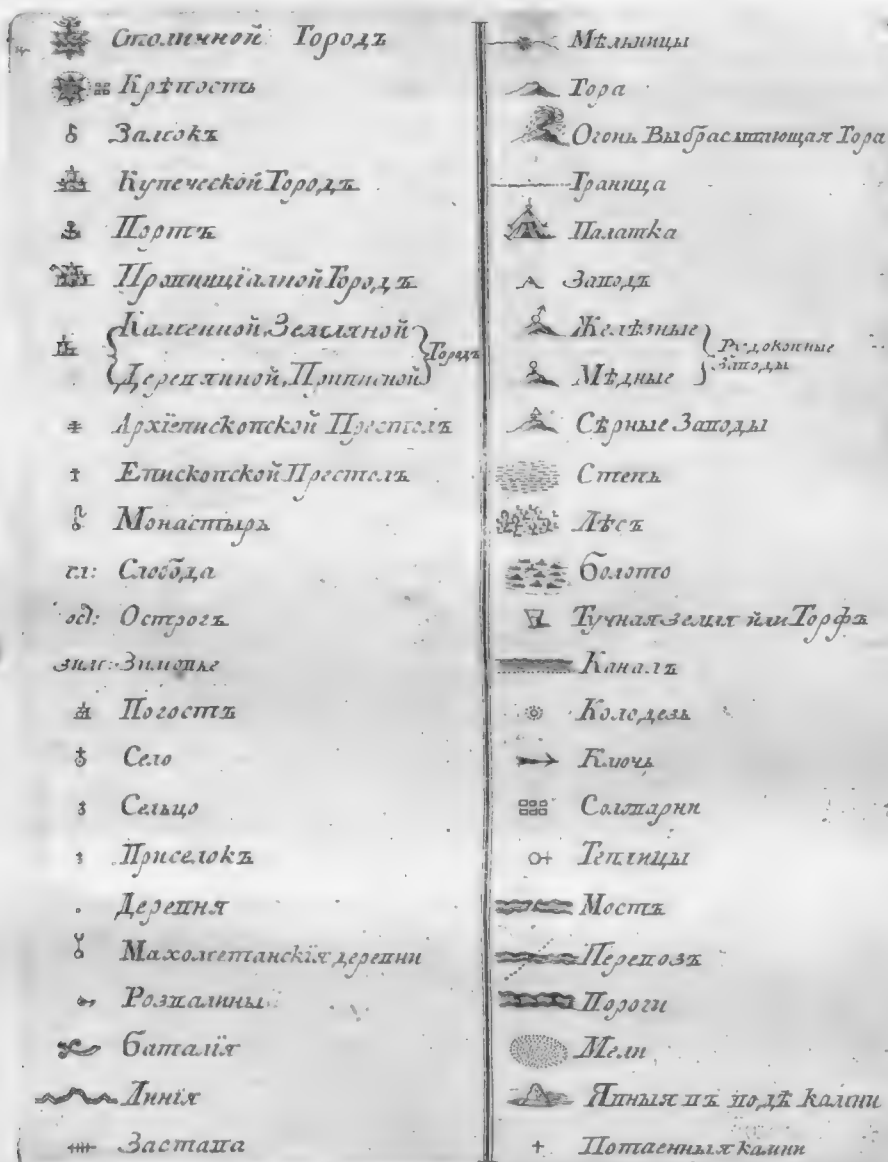 Столичной Городъ
Крѣпость
Замокъ
Купеческой Городъ
Портъ
Провинцїалной Городъ
Каменной, Земляной
Деревянной, Приписной
Городъ
Архїепископской Престолъ
Епископской Престолъ
Монастырь
сл: Слобода
Острогъ
зим: Зимовье
Погостъ
Село
Сельцо
Приселокъ
Деревня
Махометанскїя деревни
Розвалины
Баталїя
Линїя
Застава
Мѣльницы
Гора
Огонь Выбрасывающая Гора
Граница
Палатка
Заводъ
Желѣзные
Мѣдные
Рудокопные
Заводы
Сѣрные Заводы
Степь
Лѣсъ
Болото
Тучная земля или Торфъ
Каналъ
Колодезь
Ключь
Солварни
Теплицы
Мостъ
Перевозъ
Пороги
Мели
Явныя въ водѣ камни
Потаенныя камни